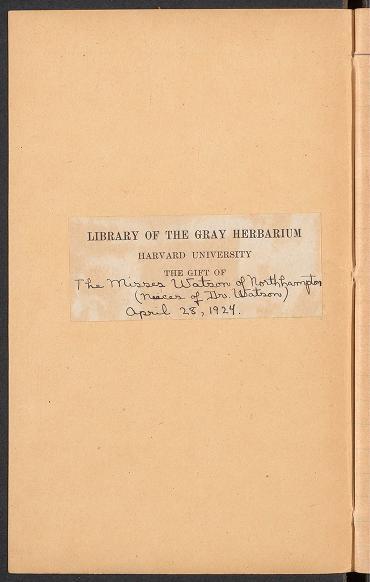 LIBRARY OF THE GRAY HERBARIUM
HARVARD UNIVERSITY
THE GIFT OF
The Misses Watson of Northhampton
(Neeces of Dr. Watson)
April 28, 1924.